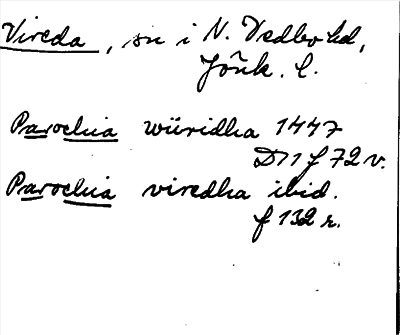 Vireda, sn i N. Vedbo hd,
Jönk. l.
Parochia würidha 1447
D 11 f 72 v.
Parochia viredha ibid.
f 132 r.